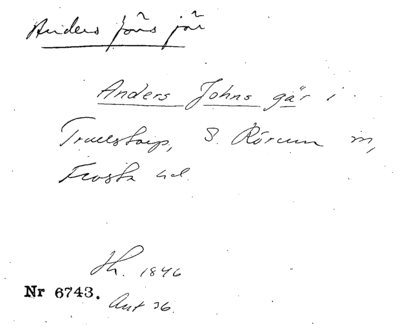 Anders Jöns jär
Anders Johns går i
Truelstorp, S. Rörum m,
Frosta hd
Jh. 1846
Nr 6743.
Ant 36.